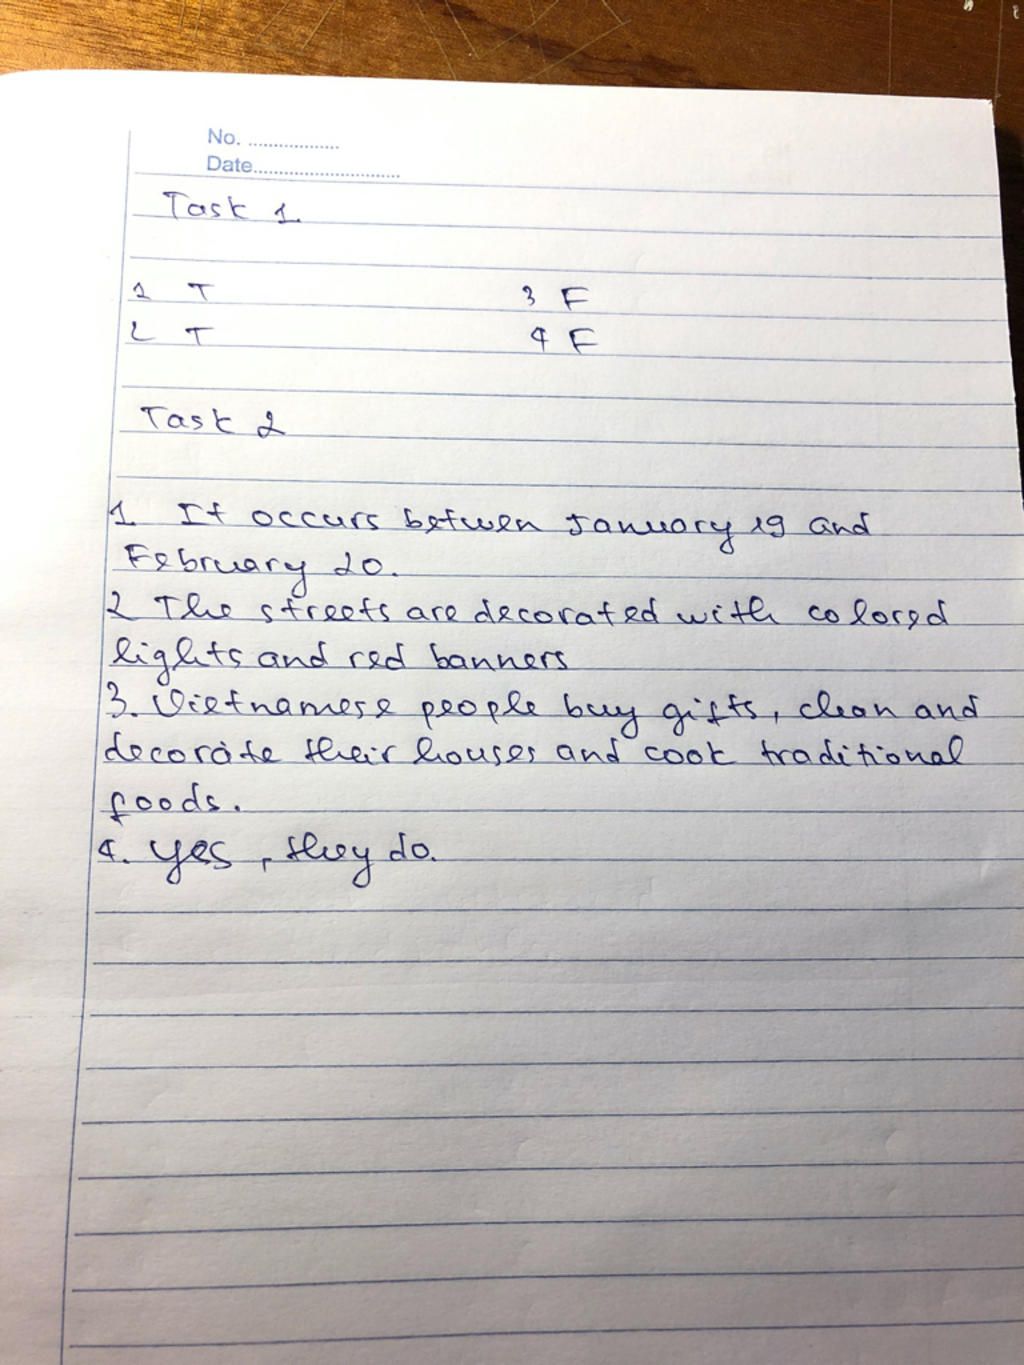 No. ..................
Date..............................
Task 1
1 T 3 F
2 T 4 F
Task 2
1 It occurs betwen January 19 and
February 20.
2 The streets are decorated with colored
lights and red banners
3. Vietnamese people buy gifts, clean and
decorate their houses and cook traditional
foods.
4. Yes, they do.